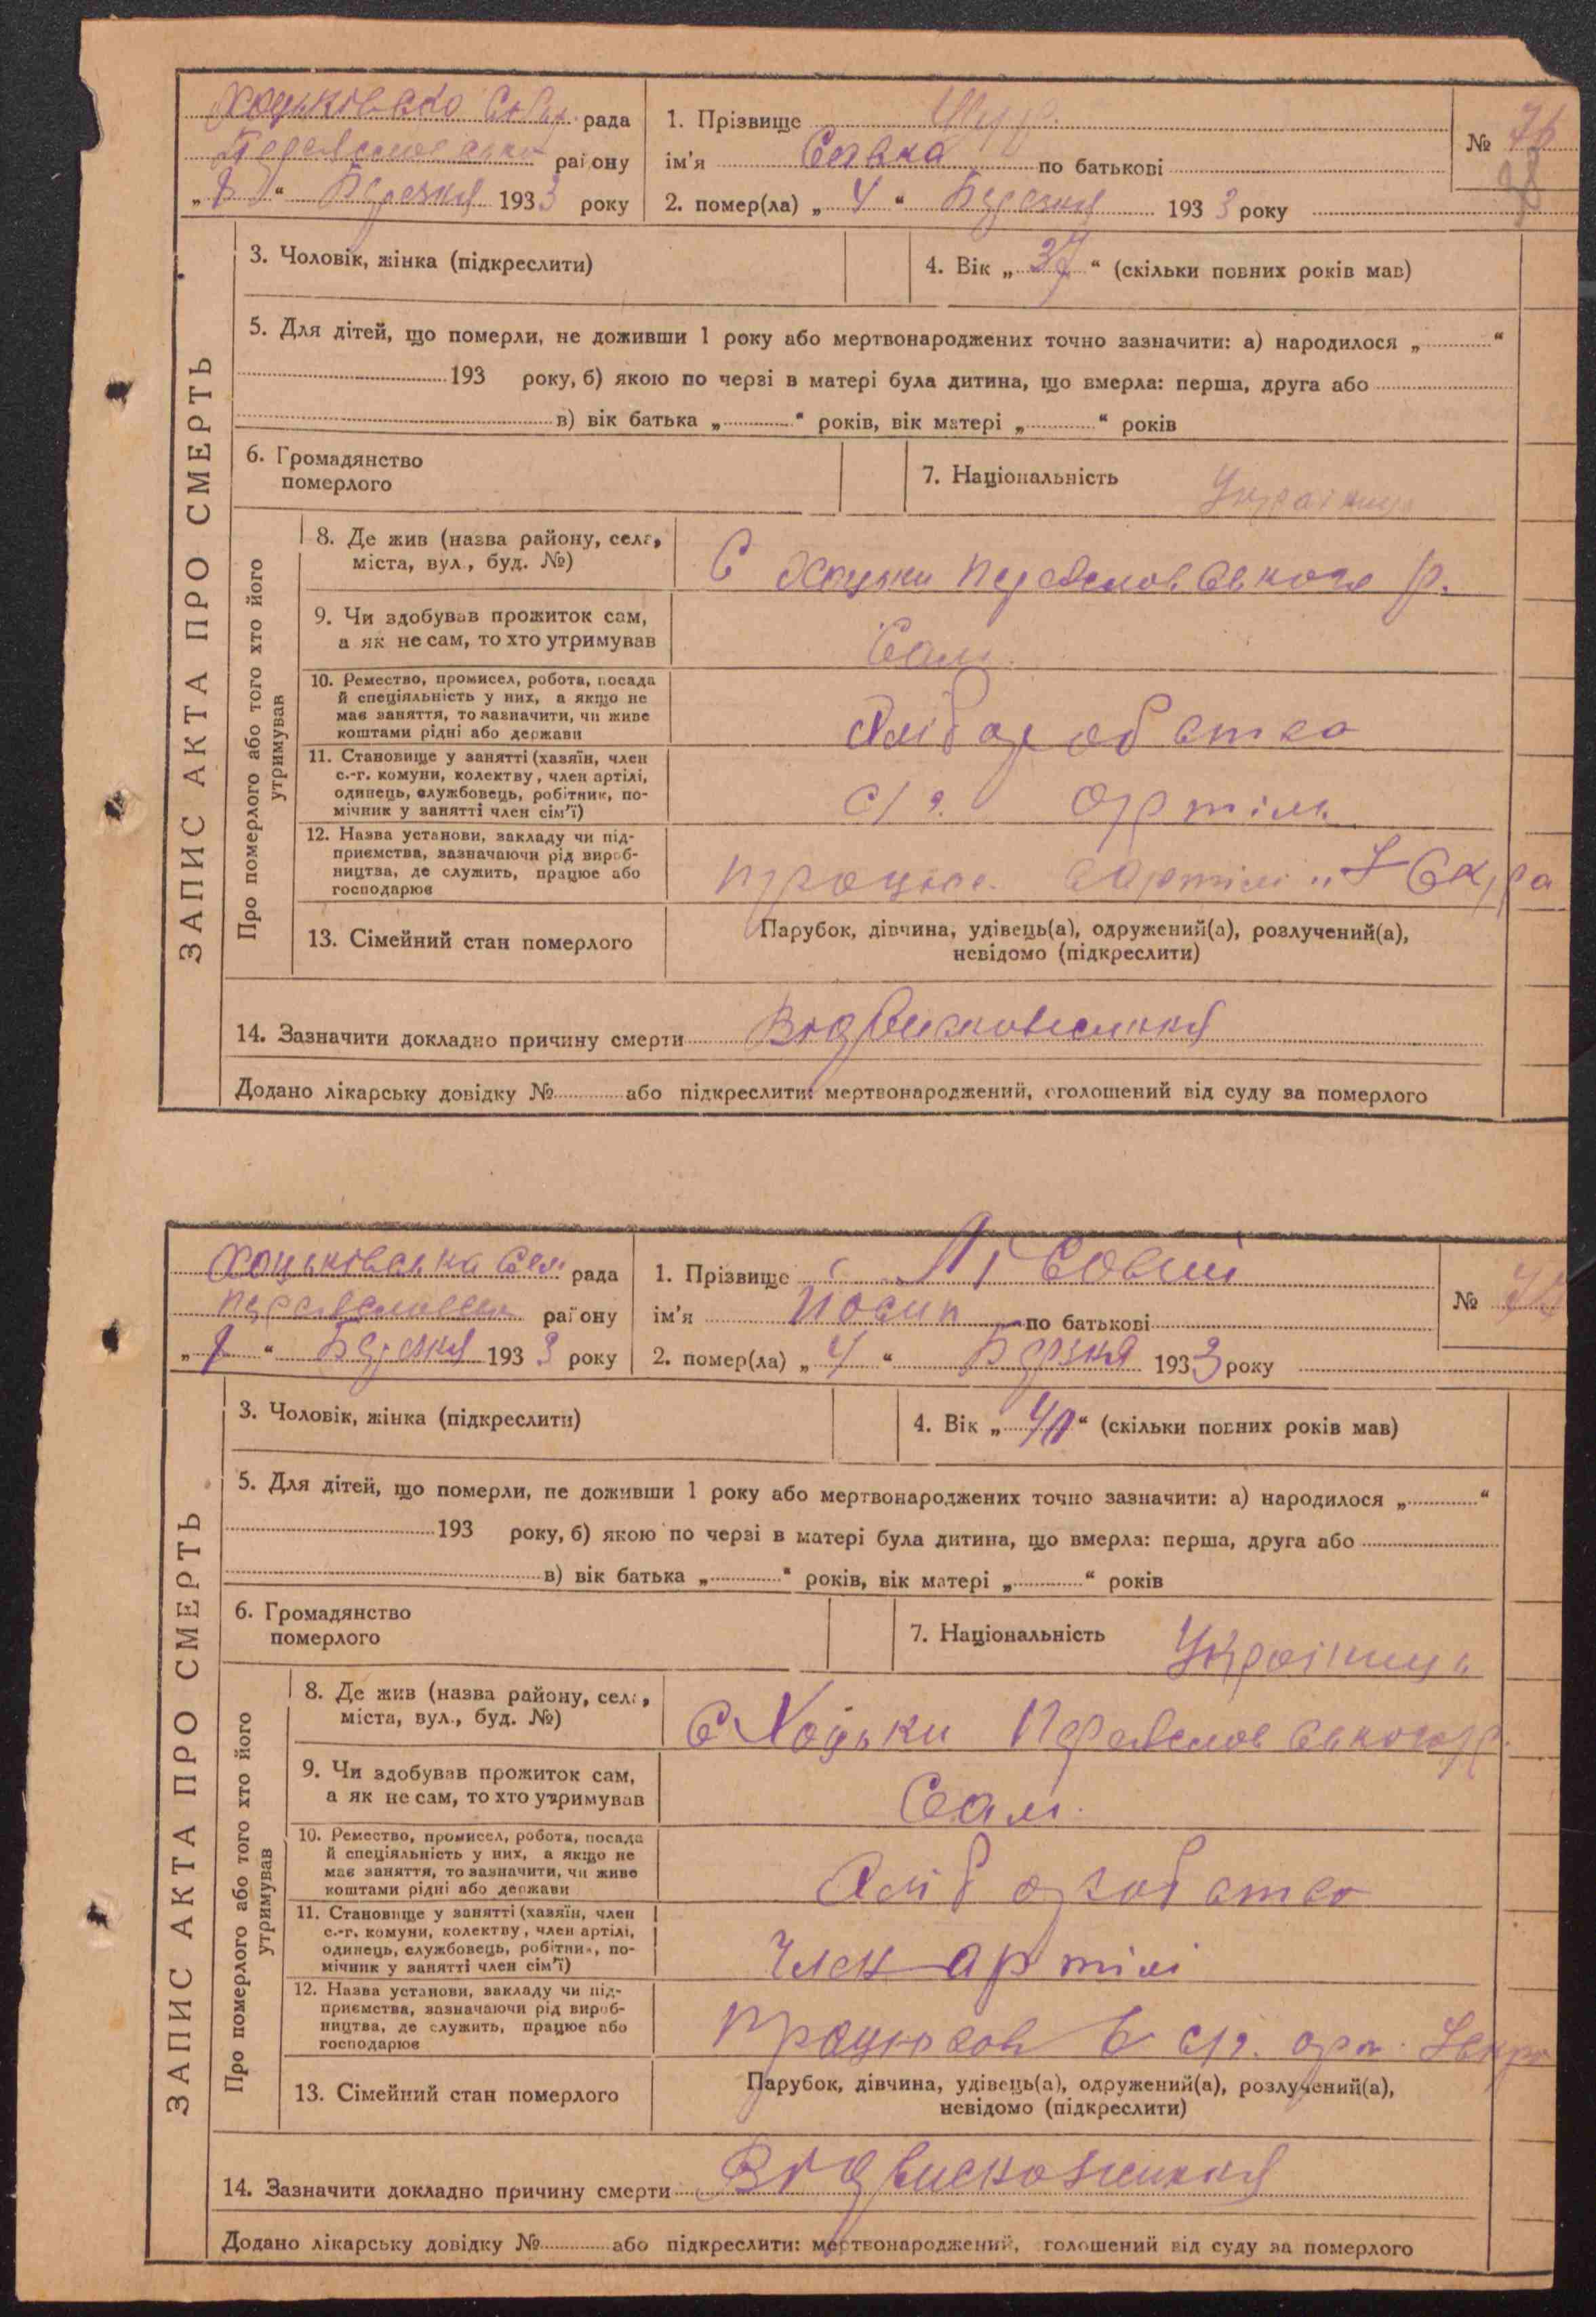 Хоцьківсько сіль. рада
Переяславсько району
„ 8 “ Березня 1933 року
1. Прізвище Щур.
ім'я Савка по батькові
2. помер(ла) „ 4 “ Березня 1933 року
№
ЗАПИС АКТА ПРО СМЕРТЬ
3. Чоловік, жінка (підкреслити)
4. Вік „ 37 “ (скільки повних років мав)
5. Для дітей, що померли, не доживши 1 року або мертвонароджених точно зазначити: а) народилося „ “
193 року, б) якою по черзі в матері була дитина, що вмерла: перша, друга або
в) вік батька „ “ років, вік матері „ “ років
6. Громадянство
померлого
7. Національність Українць
Про померлого або того хто його
утримував
8. Де жив (назва району, села,
міста, вул., буд. №)
С Хоцьки Переяславського р.
9. Чи здобував прожиток сам,
а як не сам, то хто утримував
Сам.
10. Ремество, промисел, робота, посада
й спеціяльність у них, а якщо не
має заняття, то зазначити, чи живе
коштами рідні або держави
Хлібаробство
11. Становище у занятті (хазяїн, член
с.-г. комуни, колективу, член артілі,
одинець, службовець, робітник, по-
мічник у занятті член сім'ї)
С/г. артіль
12. Назва установи, закладу чи під-
приємства, зазначаючи рід вироб-
ництва, де служить, працює або
господарює
працює. в артілі „Іскра
13. Сімейний стан померлого
Парубок, дівчина, удівець(а), одружений(а), розлучений(а),
невідомо (підкреслити)
14. Зазначити докладно причину смерти Від виснаження
Додано лікарську довідку № або підкреслити: мертвонароджений, оголошений від суду за померлого
Хоцьківська сіль рада
Переяславська району
„ 8 “ Березня 1933 року
1. Прізвище Лісовий
ім'я Йосип по батькові
2. помер(ла) „ 4 “ Берзня 1933 року
№
ЗАПИС АКТА ПРО СМЕРТЬ
3. Чоловік, жінка (підкреслити)
4. Вік „ 40 “ (скільки повних років мав)
5. Для дітей, що померли, не доживши 1 року або мертвонароджених точно зазначити: а) народилося „ “
193 року, б) якою по черзі в матері була дитина, що вмерла: перша, друга або
в) вік батька „ “ років, вік матері „ “ років
6. Громадянство
померлого
7. Національність Українць
Про померлого або того хто його
утримував
8. Де жив (назва району, села,
міста, вул., буд. №)
С Хоцьки Переяславського р.
9. Чи здобував прожиток сам,
а як не сам, то хто утримував
Сам.
10. Ремество, промисел, робота, посада
й спеціяльність у них, а якщо не
має заняття, то зазначити, чи живе
коштами рідні або держави
Хлібаробство
11. Становище у занятті (хазяїн, член
с.-г. комуни, колективу, член артілі,
одинець, службовець, робітник, по-
мічник у занятті член сім'ї)
Член артілі
12. Назва установи, закладу чи під-
приємства, зазначаючи рід вироб-
ництва, де служить, працює або
господарює
працював в с/г. арт. Іскра
13. Сімейний стан померлого
Парубок, дівчина, удівець(а), одружений(а), розлучений(а),
невідомо (підкреслити)
14. Зазначити докладно причину смерти Від виснаження
Додано лікарську довідку № або підкреслити: мертвонароджений, голошений від суду за померлого